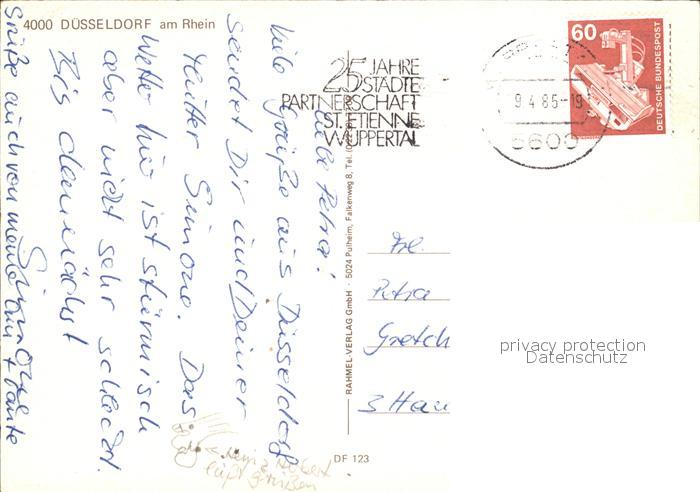 4000 DÜSSELDORF am Rhein
25 JAHRE
STÄDTE
PARTNERSCHAFT
ST. ETIENNE
WUPPERTAL
9.4.85-19
5600
60
DEUTSCHE BUNDESPOST
Liebe Petra!
Viele Grüße aus Düsseldorf
sendet Dir und Deiner
Mutter Simone. Das
Wetter hier ist stürmisch
aber nicht sehr schlecht.
Bis demnächst
Simone
Grüße auch von meiner + Tante
Hubert
läßt grüßen
RAHMEL-VERLAG GmbH · 5024 Pulheim, Falkenweg 8, Tel.
DF 123
Frl.
Petra
Gretch
3 Han
privacy protection
Datenschutz